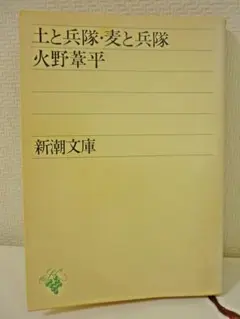 土と兵隊・麦と兵隊
火野葦平
新潮文庫